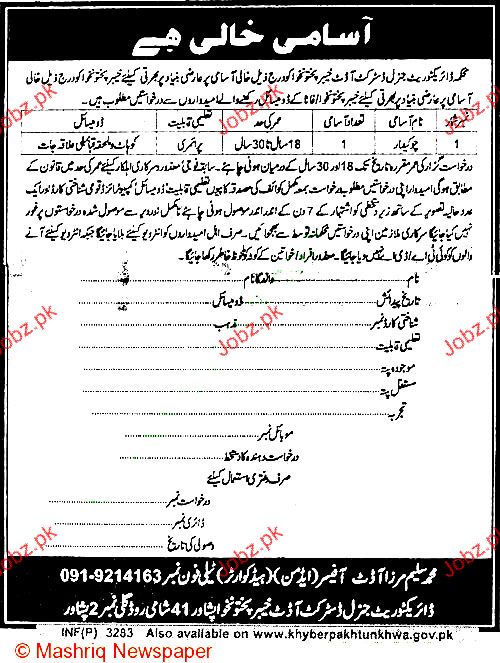 آسامی خالی ہے
محکمہ ڈائریکٹوریٹ جنرل ڈسٹرکٹ آڈٹ خیبر پختونخوا کو درج ذیل خالی
آسامی پر عارضی بنیاد پر بھرتی کیلئے خیبر پختونخوا/فاٹا کے ڈومیسائل رکھنے والے امیدواروں سے درخواستیں مطلوب ہیں۔
نمبر شمار نام آسامی تعداد آسامی عمر کی حد تعلیمی قابلیت ڈومیسائل
1 چوکیدار 1 18 سال تا 30 سال پرائمری کوہاٹ و ملحقہ قبائلی علاقہ جات
درخواست گزار کی عمر مقررہ تاریخ تک 18 اور 30 سال کے درمیان ہونی چاہئے۔ سابقہ فوجی/معذور/سرکاری اہلکار کیلئے عمر کی حد قانون کے
مطابق ہوگی امیدوار اپنی درخواستیں بمعہ مکمل کوائف کی مصدقہ کاپیوں تعلیمی قابلیت، ڈومیسائل کمپیوٹرائزڈ قومی شناختی کارڈ اور ایک
عدد حالیہ تصویر کے ساتھ زیر دستخطی کو اشتہار کے 7 دن کے اندر اندر موصول ہونی چاہئے نامکمل اور دیر سے موصول شدہ درخواستوں پر غور
نہیں کیا جائیگا سرکاری ملازمین اپنی درخواستیں محکمانہ توسط سے بھجوائیں۔ صرف اہل امیدواروں کو انٹرویو کیلئے بلایا جائیگا جبکہ انٹرویو کیلئے آنے
والوں کو کوئی ٹی اے/ڈی اے نہیں دیا جائیگا۔ معذور افراد/خواتین کے کوٹہ کو ملحوظ خاطر رکھا جائیگا۔
نام والد کا نام
تاریخ پیدائش ڈومیسائل
شناختی کارڈ نمبر مذہب
تعلیمی قابلیت
موجودہ پتہ
مستقل پتہ
تجربہ
موبائل نمبر
درخواست دہندہ کا دستخط
صرف دفتری استعمال کیلئے
درخواست نمبر
ڈائری نمبر
وصولی کی تاریخ
محمد سلیم مرزا آڈٹ آفیسر (ایڈمن) (ہیڈ کوارٹر) ٹیلی فون نمبر 091-9214163
ڈائریکٹوریٹ جنرل ڈسٹرکٹ آڈٹ خیبر پختونخوا پشاور 41 شامی روڈ گلی نمبر 2 پشاور
INF(P) 3283 Also available on www.khyberpakhtunkhwa.gov.pk
© Mashriq Newspaper
Jobz.pk